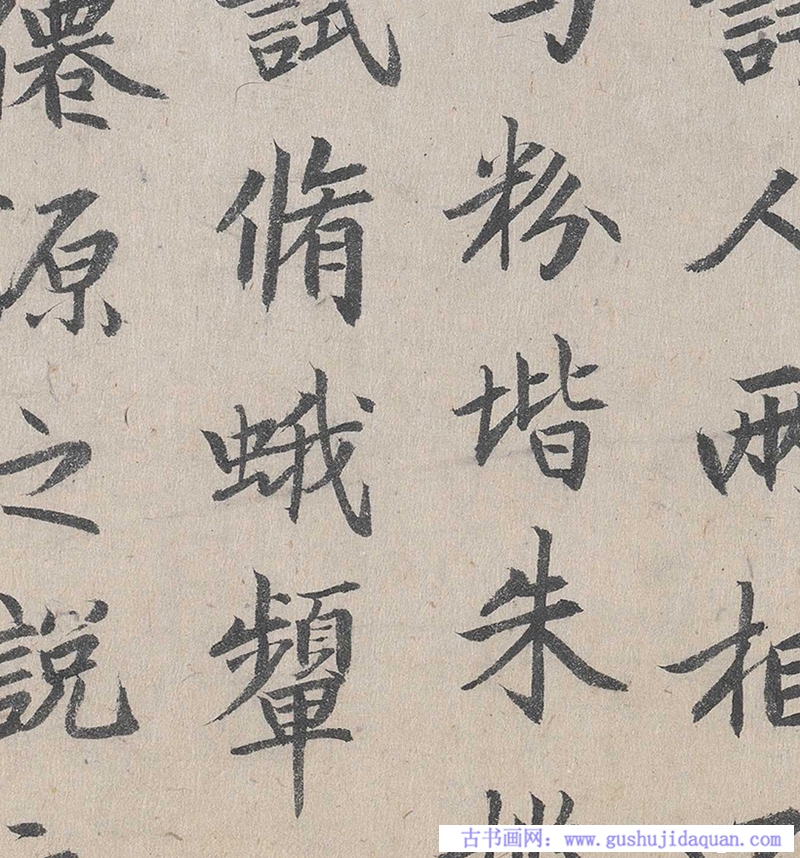 人兩相
粉堦朱
試脩蛾顰
僊源之說
古书画网：www.gushujidaquan.com